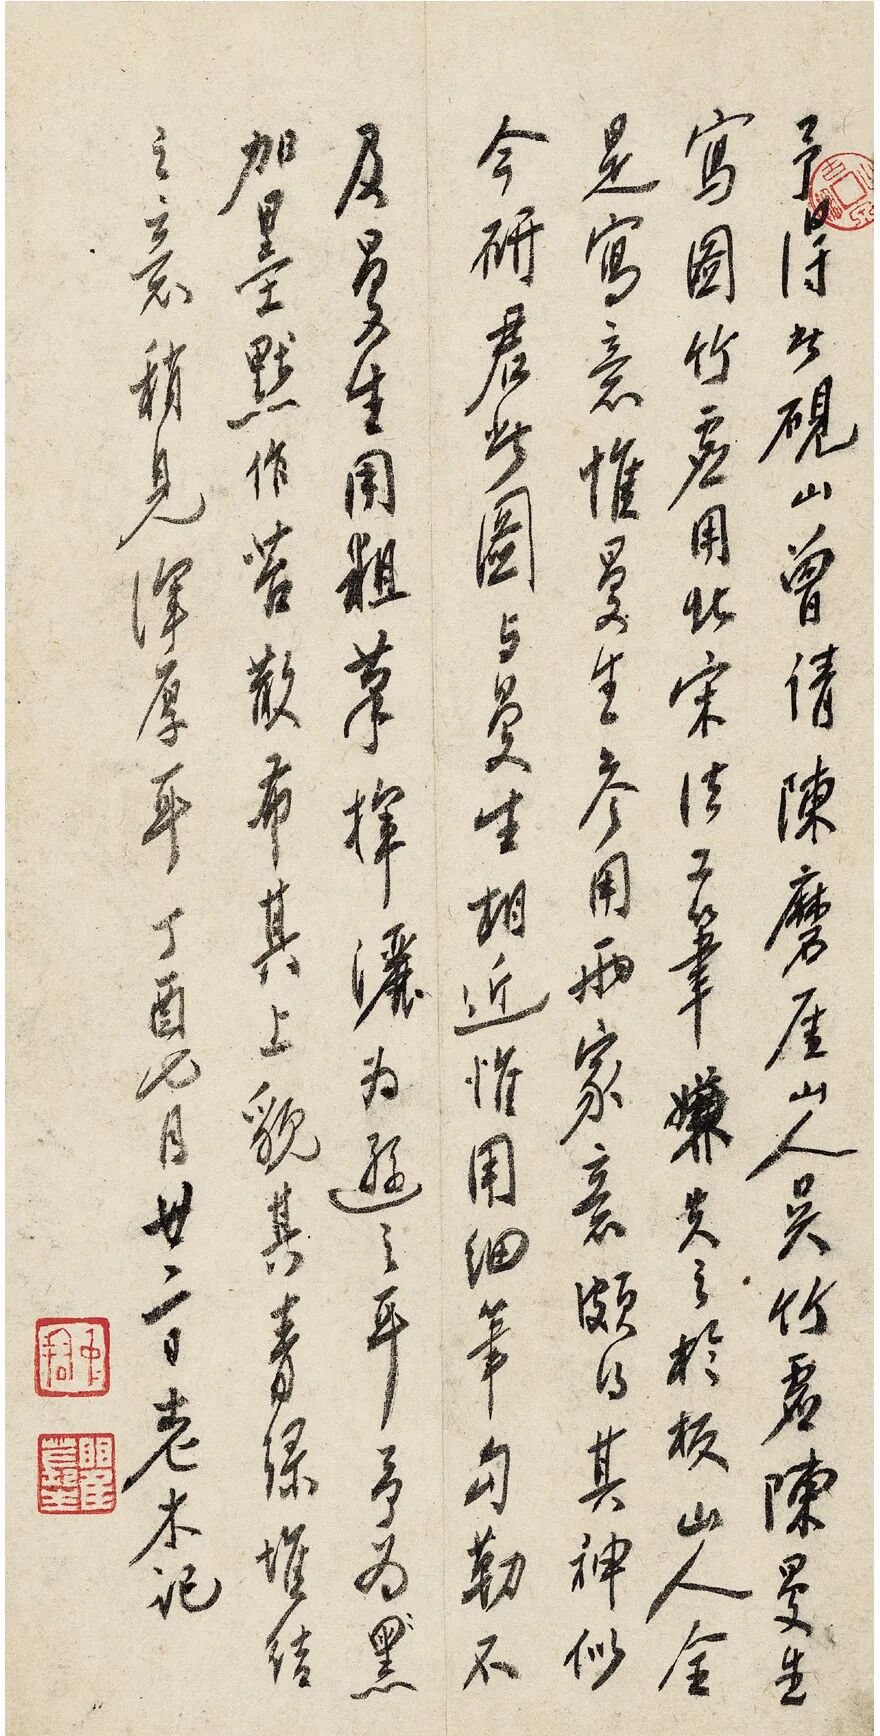 予得此硯山曾请陳磨厓山人吴竹虚陳曼生
寫圖竹虚用北宋法工筆嫌失之於板山人全
是寫意惟曼生参用兩家意頗得其神似
今研君此圖与曼生相近惟用细筆勾勒不
及曼生用粗筆揮灑为遜之耳予为黑
加墨點作苔散布其上貌其青绿堆结
之意稍見渾厚耳丁酉七月廿二日老木記